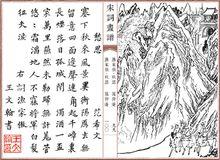 宋詞畫譜
愁思 范希文
塞下秋來風景異衡陽雁去無
留意四面邊聲連角起千嶂裏
長煙落日孤城閉濁酒一盃
家萬里燕然未勒歸無計羌管
悠悠霜滿地人不寐將軍白髮
征夫淚
王文翰書